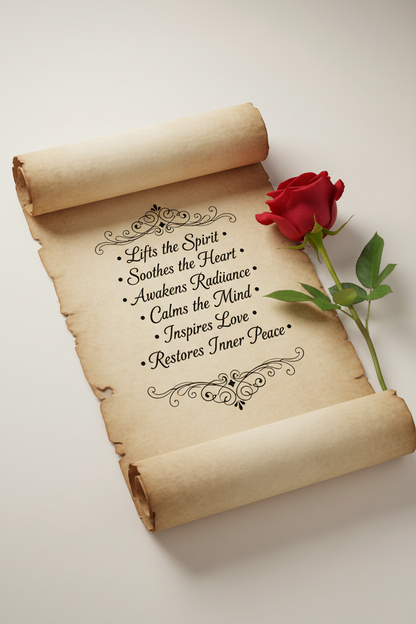 • Lifts the Spirit •
• Soothes the Heart •
• Awakens Radiiance •
• Calms the Mind •
• Inspires Love •
• Restores Inner Peace •